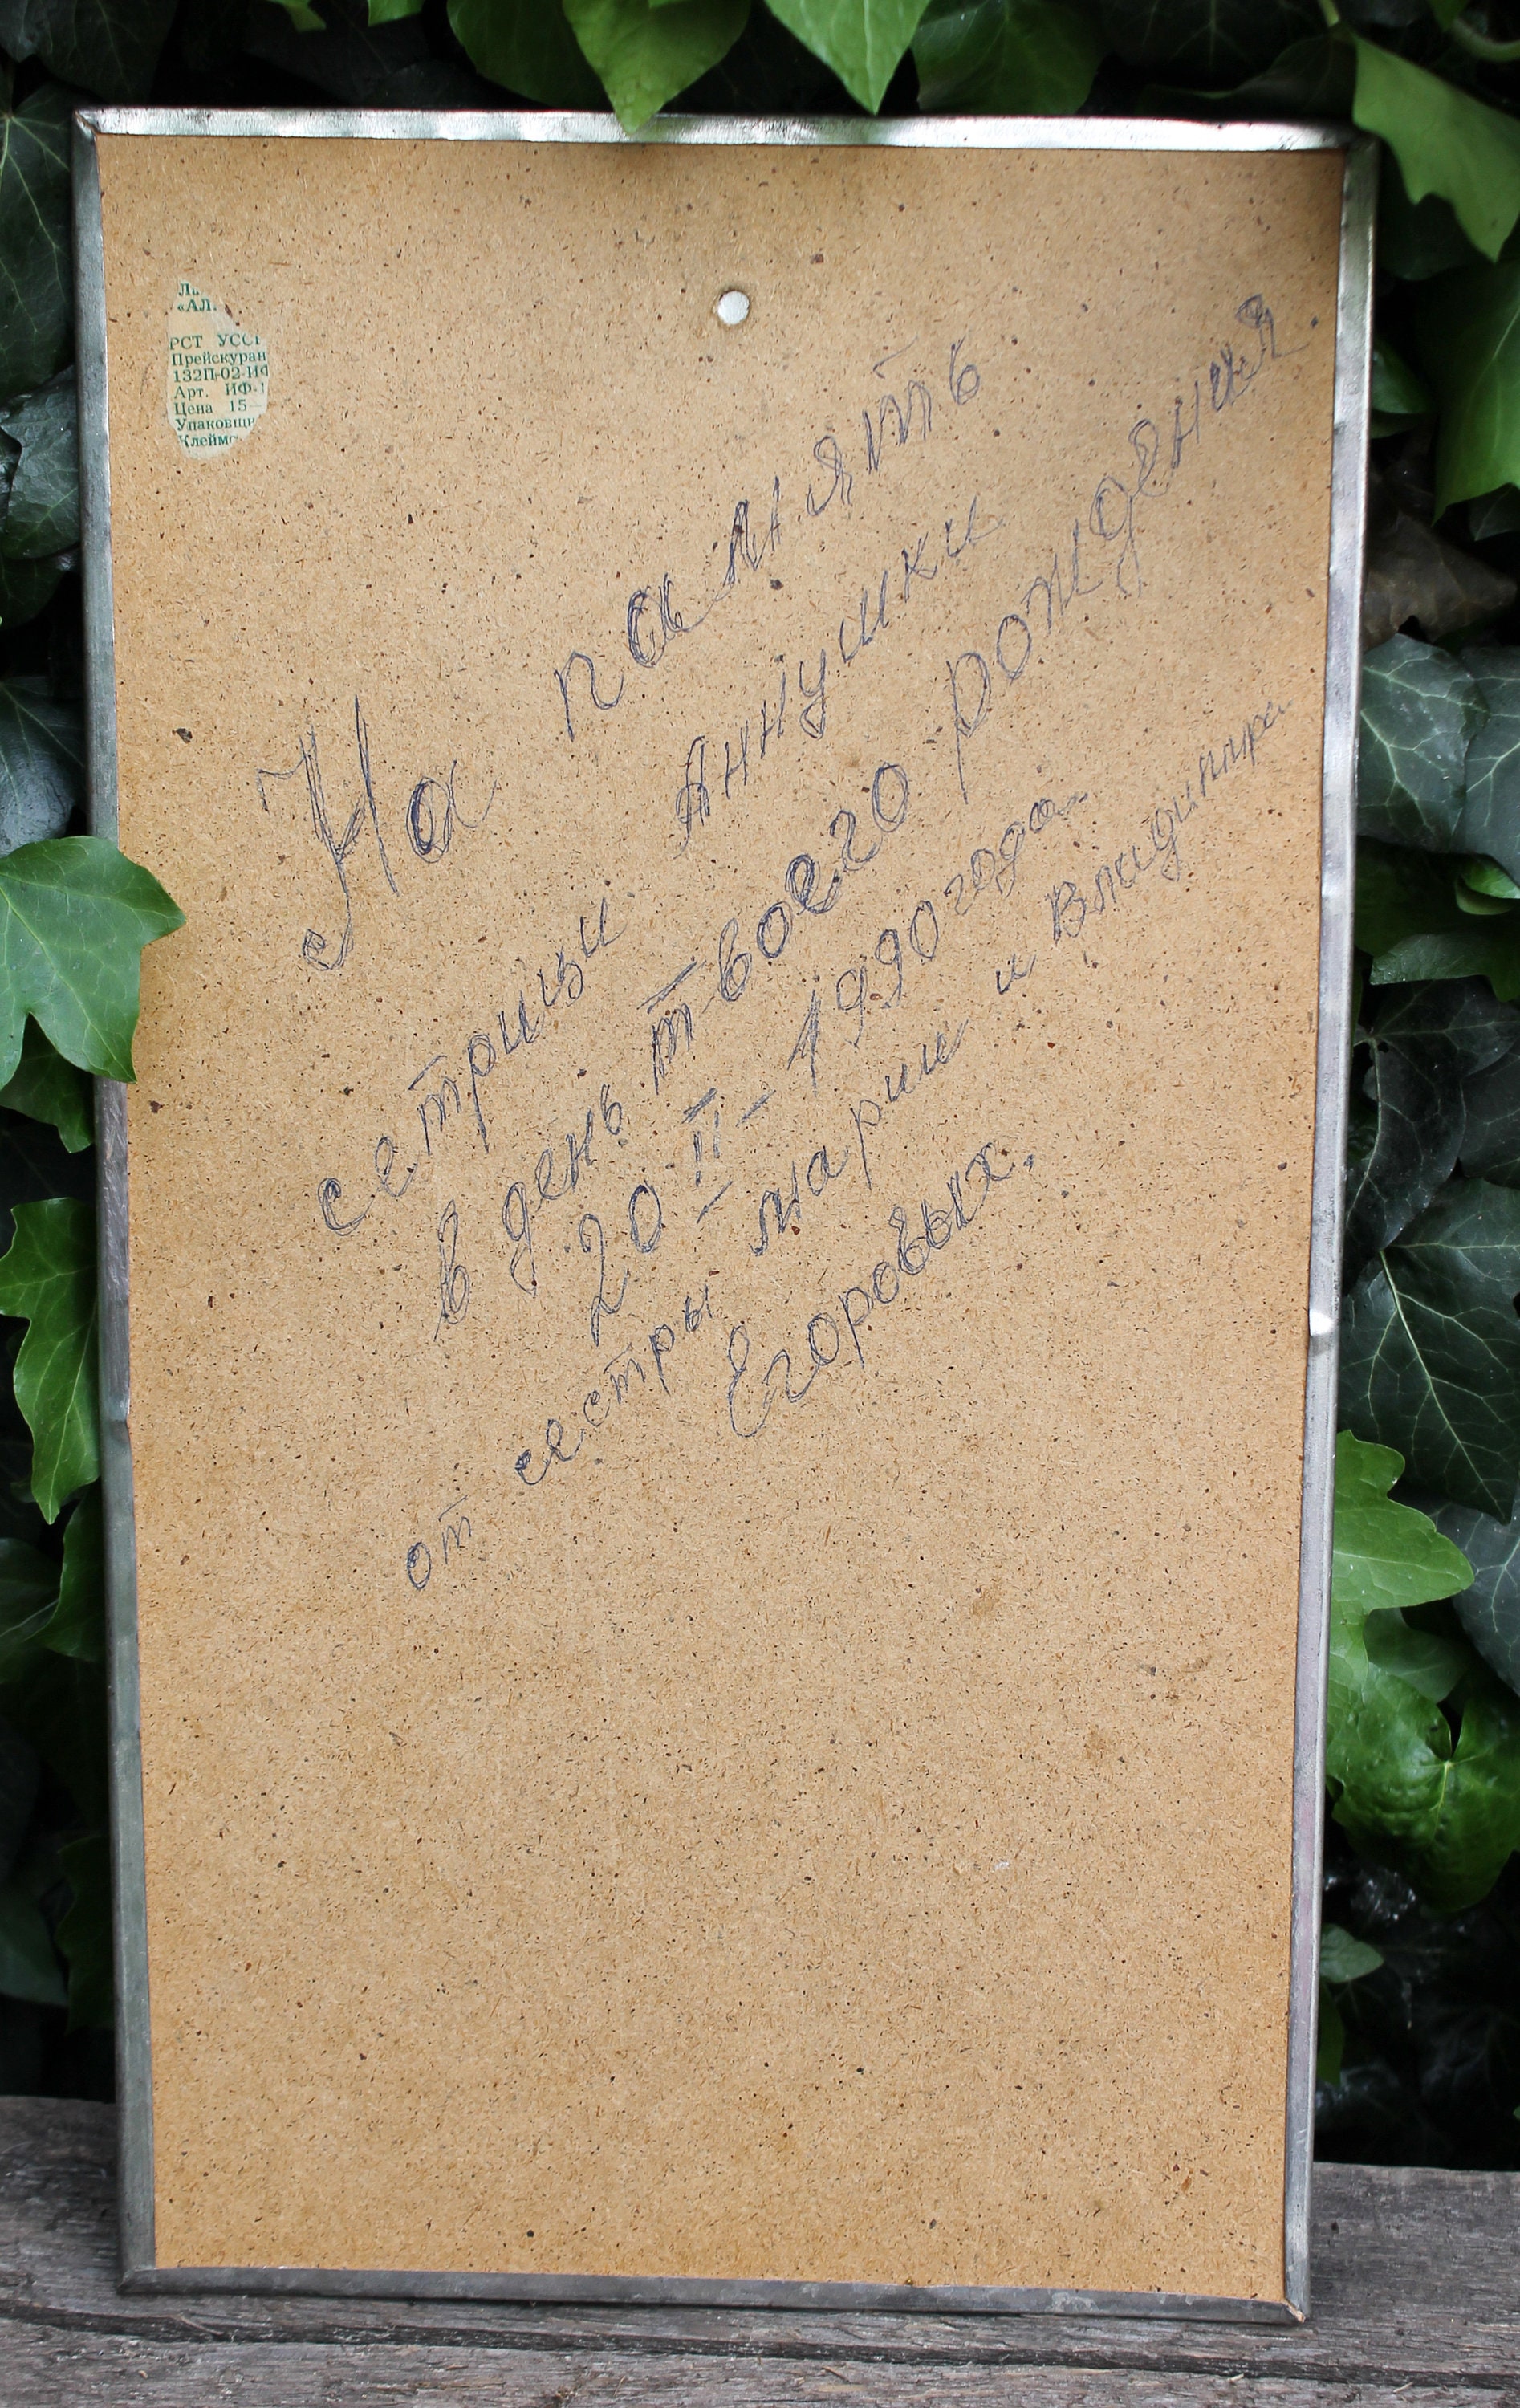 «АЛ
РСТ УССР
Прейскуран
132П-02-ИФ
Арт. ИФ-1
Цена 15—
Упаковщи
Клеймо
На память
сетрици Аннушки
в день твоего рождения.
20 – II – 1990 года.
от сестры марии и Владимира
Егоровых.